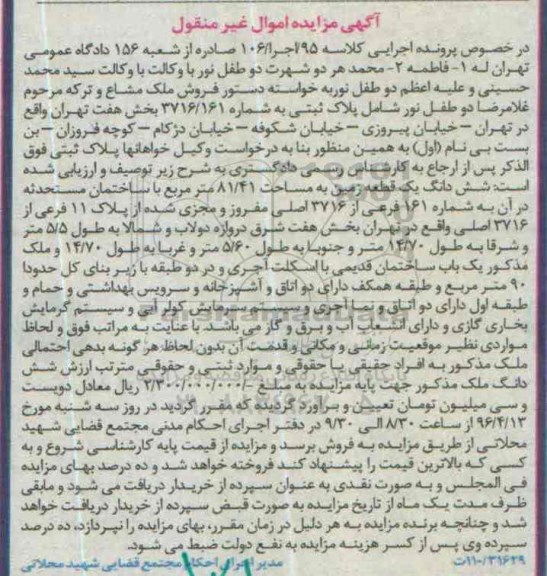 آگهی مزایده اموال غیر منقول
در خصوص پرونده اجرایی کلاسه ۹۵/اجرا/۱۰۶ صادره از شعبه ۱۵۶ دادگاه عمومی
تهران له ۱- فاطمه ۲- محمد هر دو شهرت دو طفل نور با وکالت با وکالت سید محمد
حسینی و علیه اعظم دو طفل نور به خواسته دستور فروش ملک مشاع و ترکه مرحوم
غلامرضا دو طفل نور شامل پلاک ثبتی به شماره ۳۷۱۶/۱۶۱ بخش هفت تهران واقع
در تهران – خیابان پیروزی – خیابان شکوفه – خیابان دژکام – کوچه فروزان – بن
بست بی نام (اول) به همین منظور بنا به درخواست وکیل خواهانها پلاک ثبتی فوق
الذکر پس از ارجاع به کارشناس رسمی دادگستری به شرح زیر توصیف و ارزیابی شده
است: شش دانگ یک قطعه زمین به مساحت ۸۱/۴۱ متر مربع با ساختمان مستحدثه
در آن به شماره ۱۶۱ فرعی از ۳۷۱۶ اصلی مفروز و مجزی شده از پلاک ۱۱ فرعی از
۳۷۱۶ اصلی واقع در تهران بخش هفت شرق دروازه دولاب و شمالا به طول ۵/۵ متر
و شرقا به طول ۱۴/۷۰ متر و جنوبا به طول ۵/۶۰ متر و غربا به طول ۱۴/۷۰ و ملک
مذکور یک باب ساختمان قدیمی با اسکلت آجری و در دو طبقه با زیر بنای کل حدودا
۹۰ متر مربع و طبقه همکف دارای دو اتاق و آشپزخانه و سرویس بهداشتی و حمام و
طبقه اول دارای دو اتاق و نما آجری و سیستم سرمایش کولر آبی و سیستم گرمایش
بخاری گازی و دارای انشعاب آب و برق و گاز می باشد. با عنایت به مراتب فوق و لحاظ
مواردی نظیر موقعیت زمانی و مکانی و قدمت آن بدون لحاظ هر گونه بدهی احتمالی
ملک مذکور به افراد حقیقی یا حقوقی و موارد ثبتی و حقوقی مترتب ارزش شش
دانگ ملک مذکور جهت پایه مزایده به مبلغ -/۲/۳۰۰/۰۰۰/۰۰۰ ریال معادل دویست
و سی میلیون تومان تعیین و برآورد گردیده که مقرر گردید در روز سه شنبه مورخ
۹۶/۴/۱۳ از ساعت ۸/۳۰ الی ۹/۳۰ در دفتر اجرای احکام مدنی مجتمع قضایی شهید
محلاتی از طریق مزایده به فروش برسد و مزایده از قیمت پایه کارشناسی شروع و به
کسی که بالاترین قیمت را پیشنهاد کند فروخته خواهد شد و ده درصد بهای مزایده
فی المجلس و به صورت نقدی به عنوان سپرده از خریدار دریافت می شود و مابقی
ظرف مدت یک ماه از تاریخ مزایده به صورت قبض سپرده از خریدار دریافت خواهد
شد و چنانچه برنده مزایده به هر دلیل در زمان مقرر، بهای مزایده را نپردازد، ده درصد
سپرده وی پس از کسر هزینه مزایده به نفع دولت ضبط می شود.
۱۱۰/۳۱۶۲۹ت مدیر اجرای احکام مجتمع قضایی شهید محلاتی